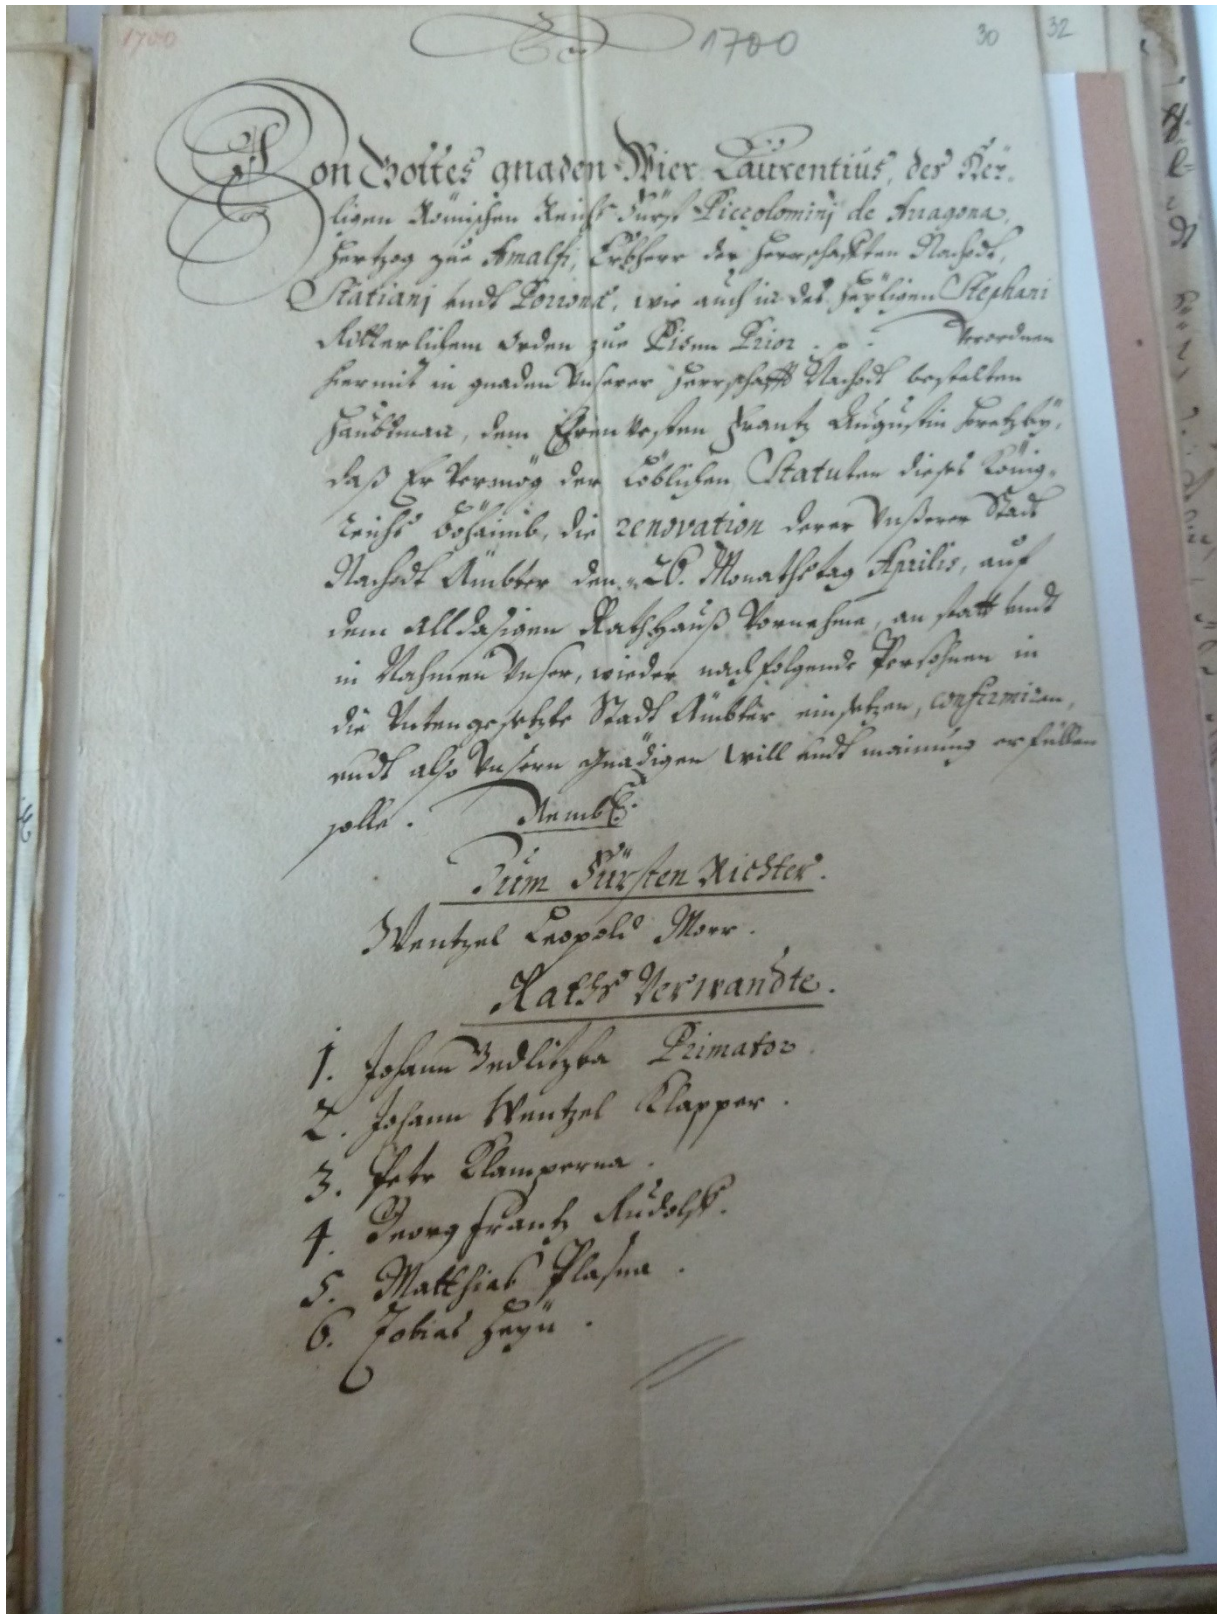 1700 1700 30 32
Von Gottes gnaden Wier Laurentius, des Heÿ-
ligen Römischen Reichs Fürst Piccolominj de Arragona,
Hertzog zue Amalfi, Erbherr der Herrschafften Nachodt,
Statianj undt Porrona, wie auch in des Heÿligen Stephani
Ritterlichem Orden zue Pisen Prior . p . Verordnen
hiermit in gnaden Unserer Herrschafft Nachodt bestelten
Haubtman, dem Ehrenvesten Frantz Augustin
daß Er Vermög der Löblichen Statuten dieses König-
reichs Böhaimb, die renovation derer Unßerer Stadt
Nachodt Ämbter den 26. Monathstag Aprilis, auf
dem alldasigen Rathhauß Vornehme, an statt undt
in Nahmen Unser, wieder nachfolgende Persohnen in
die Untengesetzte Stadt Ämbter einsetzen, confirmiren,
undt also Unsern gnädigen Will undt mainung erfüllen
solle. Nembl:
Zum Fürsten Richter.
Wentzel Leopold Morr.
Raths Verwandte.
1. Johann Zedlitzka Primator.
2. Johann Wentzel Klapper.
3. Petr Klamperna.
4. Georg Frantz Rudolff.
5. Matthias Plasna.
6. Tobias Heÿn.